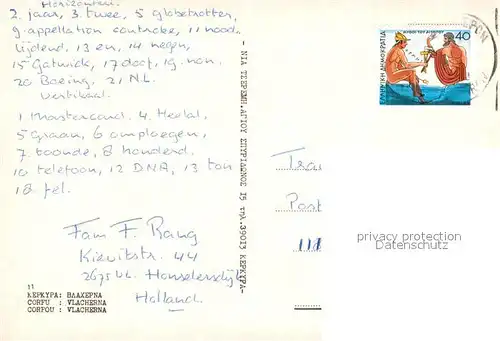 Horizontaal.
2. jaar, 3. twee, 5 globetrotter,
9 appellation controlee, 11 nood
lijdend. 13 en, 14 negen,
15 Gatwick, 17 doof, 19. non.
20 Boeing, 21 N.L.
Vertikaal.
1 Mastercard. 4. Herlal,
5 Graan, 6
7 toonde, 8 honderd.
10 telefoon, 12 DNA, 13 ton
18 fel.
Fam F. Rang
Kievitstr. 44
2675 Honselersdijk
Holland
11
ΚΕΡΚΥΡΑ: ΒΛΑΧΕΡΝΑ
CORFU : VLACHERNA
CORFOU : VLACHERNA
- ΝΙΑ ΤΣΕΡΕΜΗ.ΑΓΙΟΥ ΣΠΥΡΙΔΩΝΟΣ 15 τηλ.39013 ΚΕΡΚΥΡΑ-
ΕΛΛΗΝΙΚΗ ΔΗΜΟΚΡΑΤΙΑ
ΜΥΘΟΙ ΤΟΥ ΑΙΣΩΠΟΥ
40
Tra
Post
privacy protection
datenschutz